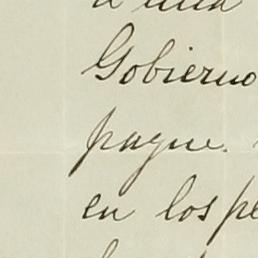 a una
Gobierno
pague.
en los pe